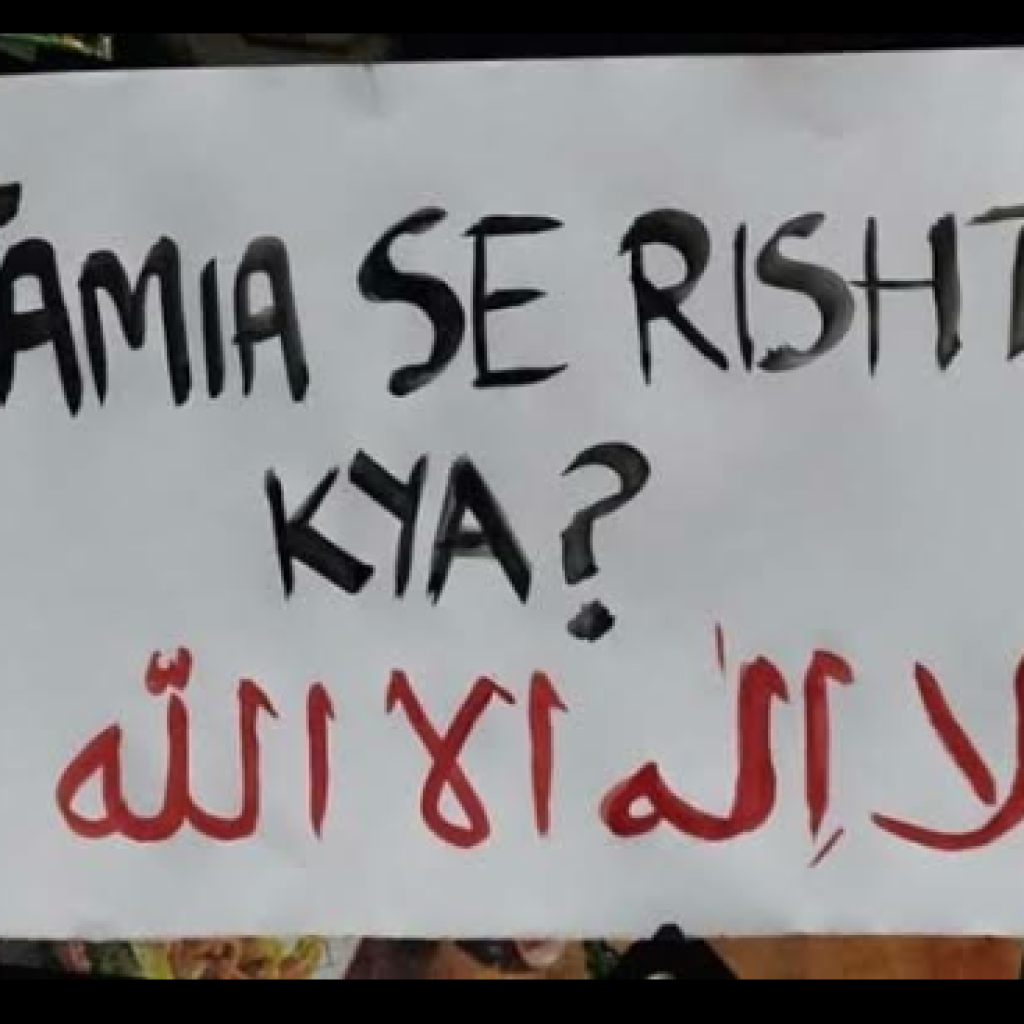 JAMIA SE RISHT
KYA?
لا إله الا الله